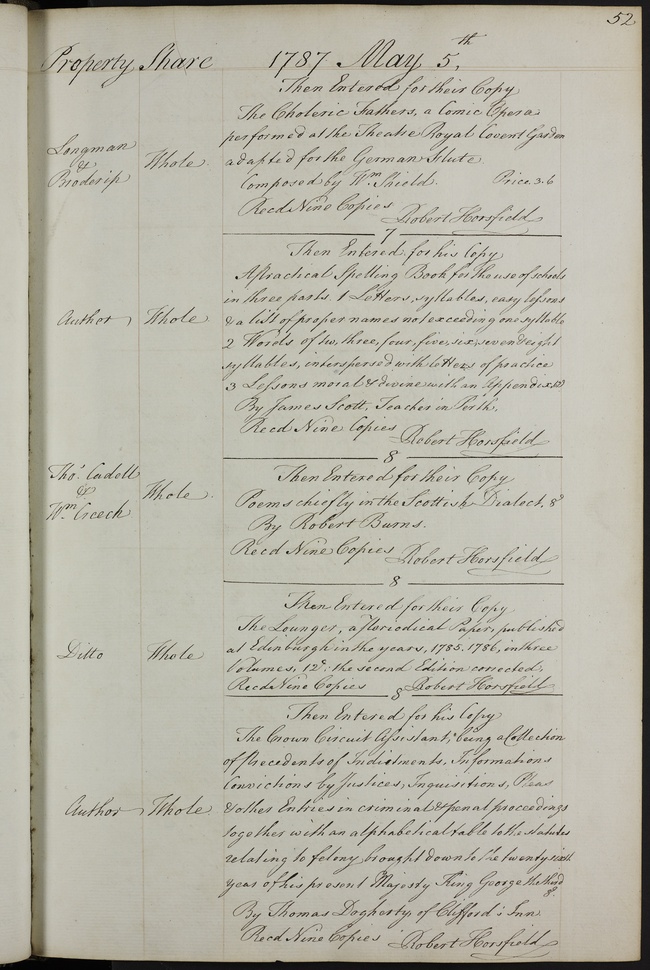 52
Property Share 1787 May 5th,
Then Entered for their Copy
The Choleric Fathers, a Comic Opera
performed at the Theatre Royal Covent Garden
Longman & Broderip
Whole
adapted for the German Flute
Composed by Wm Shield. Price 3.6
Recd Nine Copies Robert Horsfield
7
Then Entered for his Copy
A Practical Spelling Book for the use of schools
in three parts. 1 Letters, syllables, easy lessons
Author Whole & a list of proper names not exceeding one syllable
2 Words of two, three, four, five, six, seven & eight
syllables, interspersed with letters of practice
3 Lessons moral & divine with an Appendix. 12o
By James Scott, Teacher in Perth.
Recd Nine Copies Robert Horsfield
8
Thos Cadell & Wm Creech
Whole
Then Entered for their Copy
Poems chiefly in the Scottish Dialect. 8o
By Robert Burns.
Recd Nine Copies Robert Horsfield
8
Then Entered for their Copy
The Lounger, a Periodical Paper, published
at Edinburgh in the years, 1785. 1786, in three
Ditto Whole
Volumes, 12o: the second Edition corrected,
Recd Nine Copies Robert Horsfield
8
Then Entered for his Copy
The Crown Circuit Assistant; being a Collection
of Precedents of Indictments, Informations
Convictions by Justices, Inquisitions, Pleas
Author Whole & other Entries in criminal & penal proceedings
together with an alphabetical table to the statutes
relating to felony brought down to the twenty sixth
year of his present Majesty King George the third
8o
By Thomas Dogherty of Clifford's Inn
Recd Nine Copies Robert Horsfield